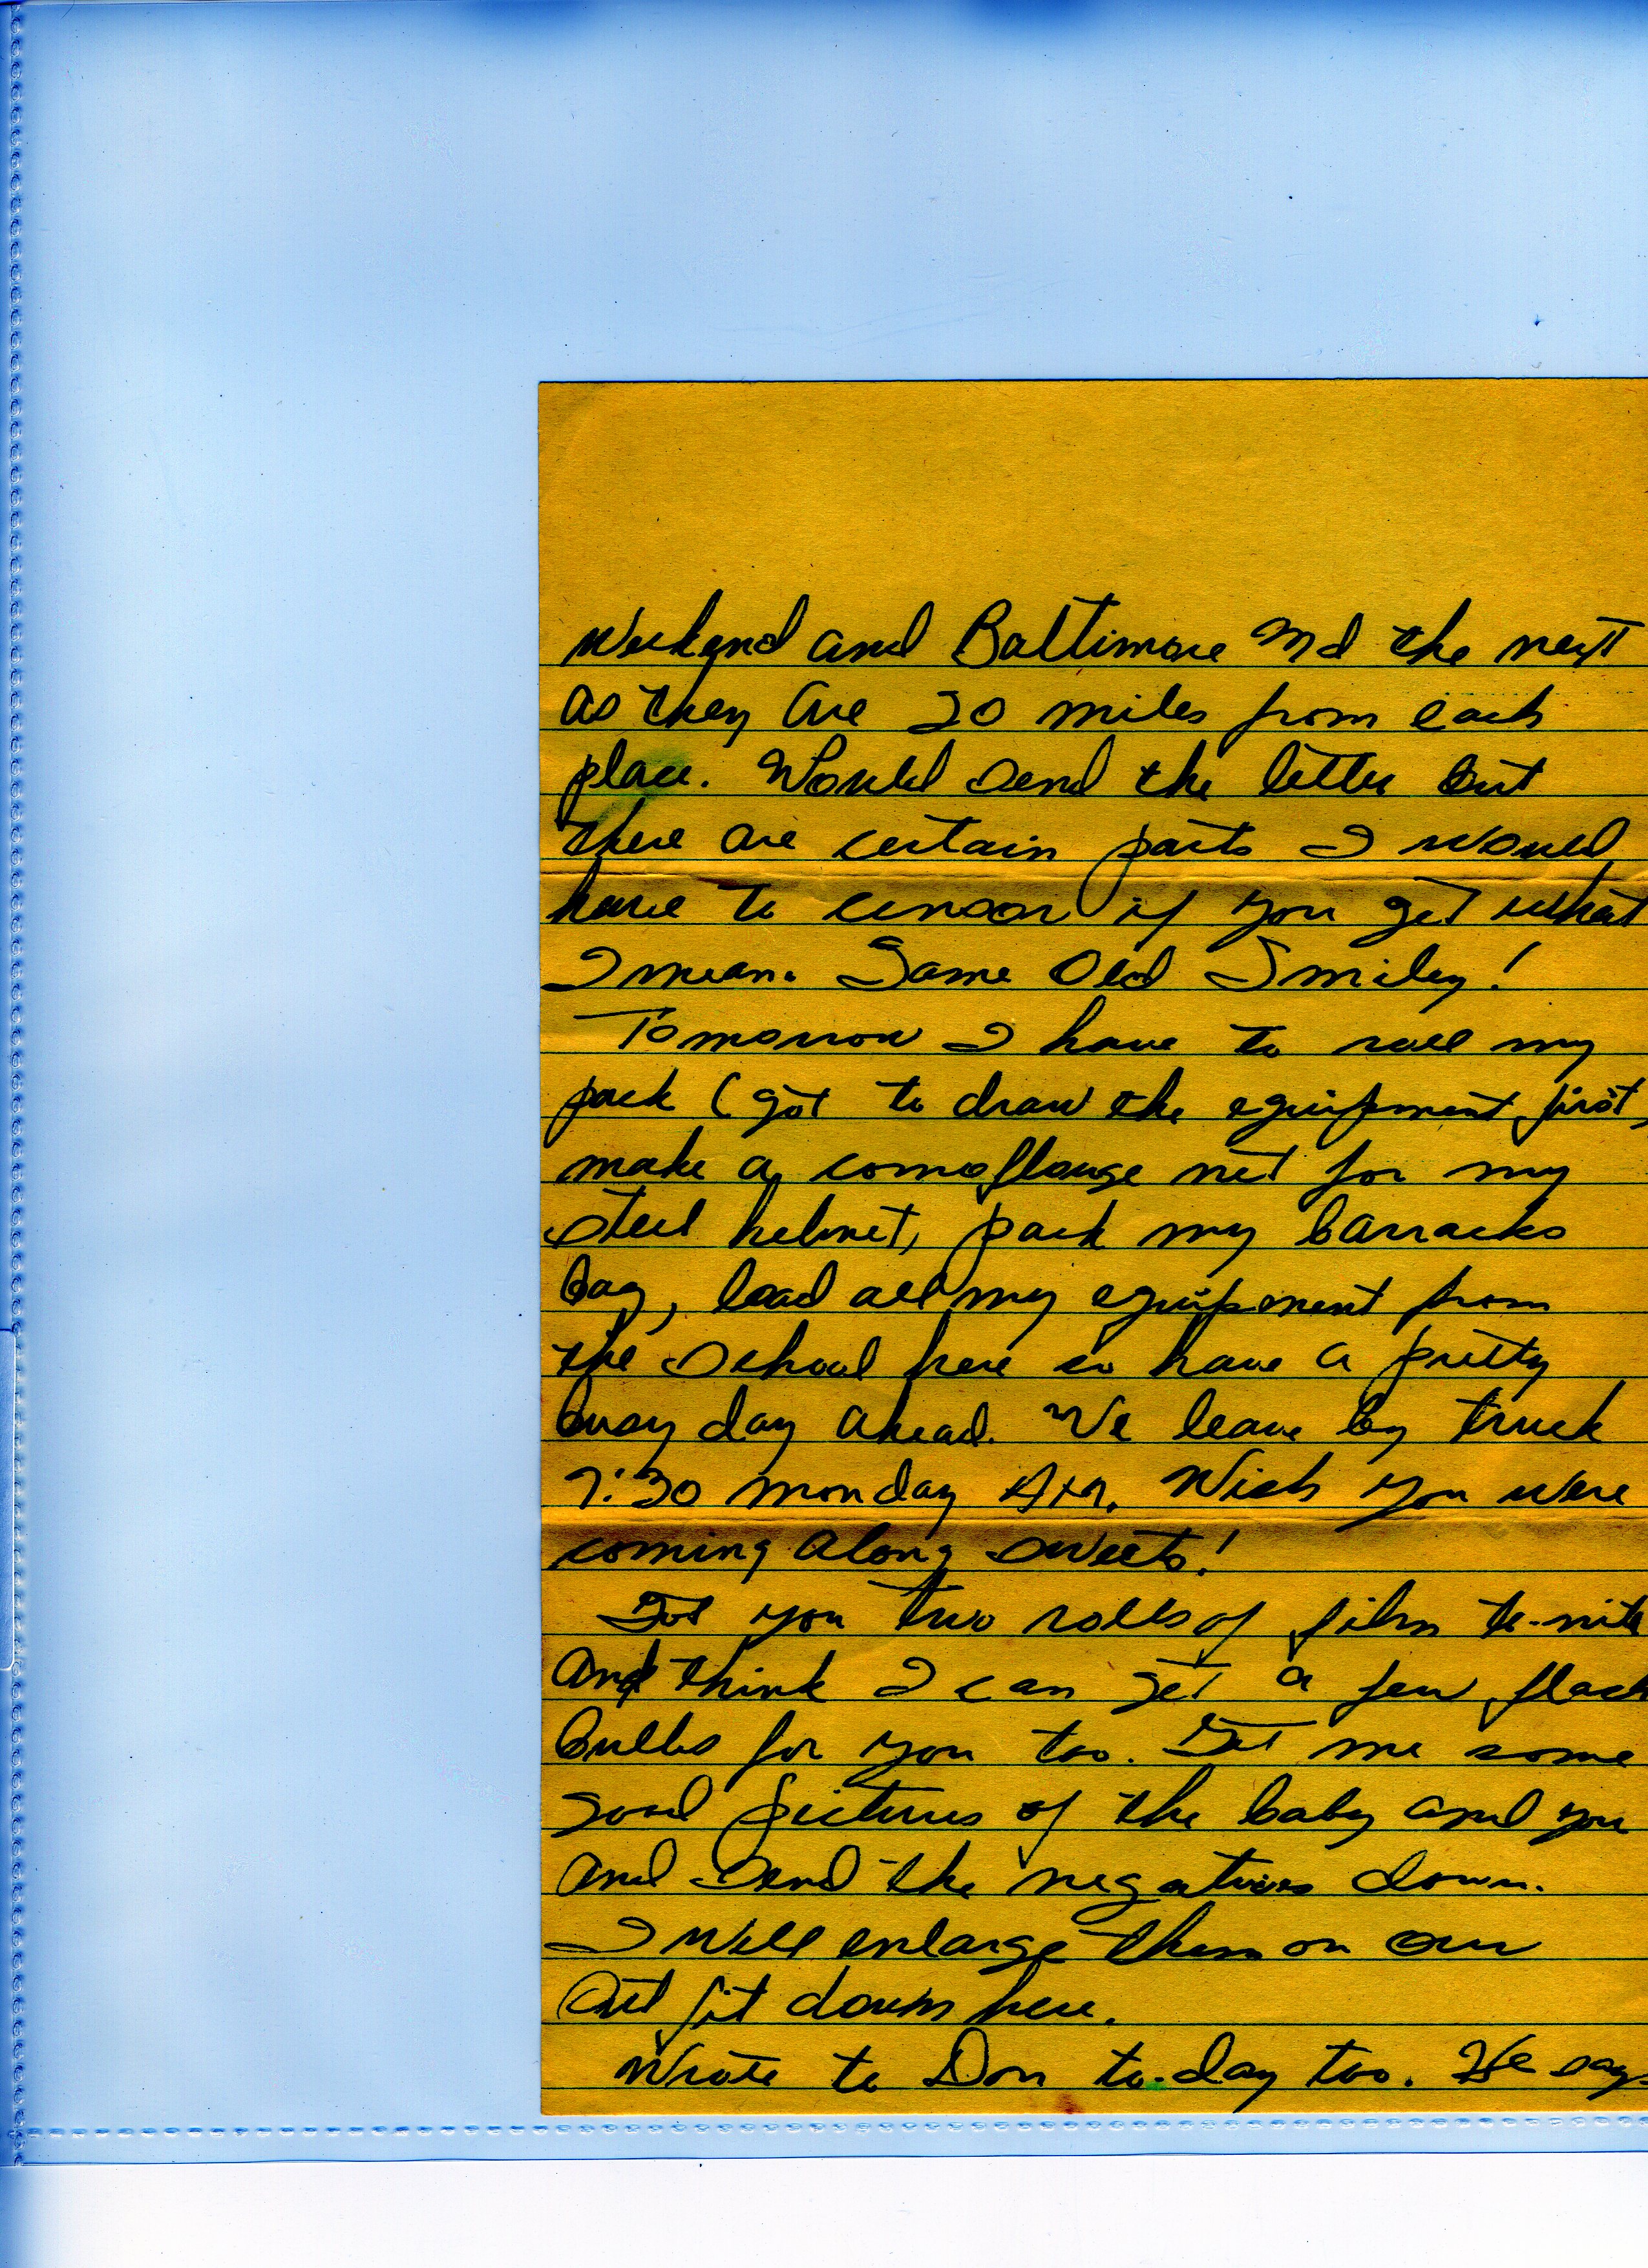 Weekend and Baltimore Md the next
as they are 20 miles from each
place. Would send the letter but
there are certain parts I would
have to censor if you get what
I mean. Same Old Smiley!
Tomorrow I have to roll my
pack (got to draw the equipment first,
make a comoflauge net for my
steel helmet, pack my barracks
bag, load all my equipment from
the School here so have a pretty
busy day ahead. We leave by truck
7:30 monday AM. Wish you were
coming along sweets!
Got you two rolls of film to-nite
and think I can get a few flash
bulbs for you too. Get me some
good pictures of the baby and you
and send the negatives down.
I will enlarge them on our
out fit down here.
Wrote to Don to-day too. He says